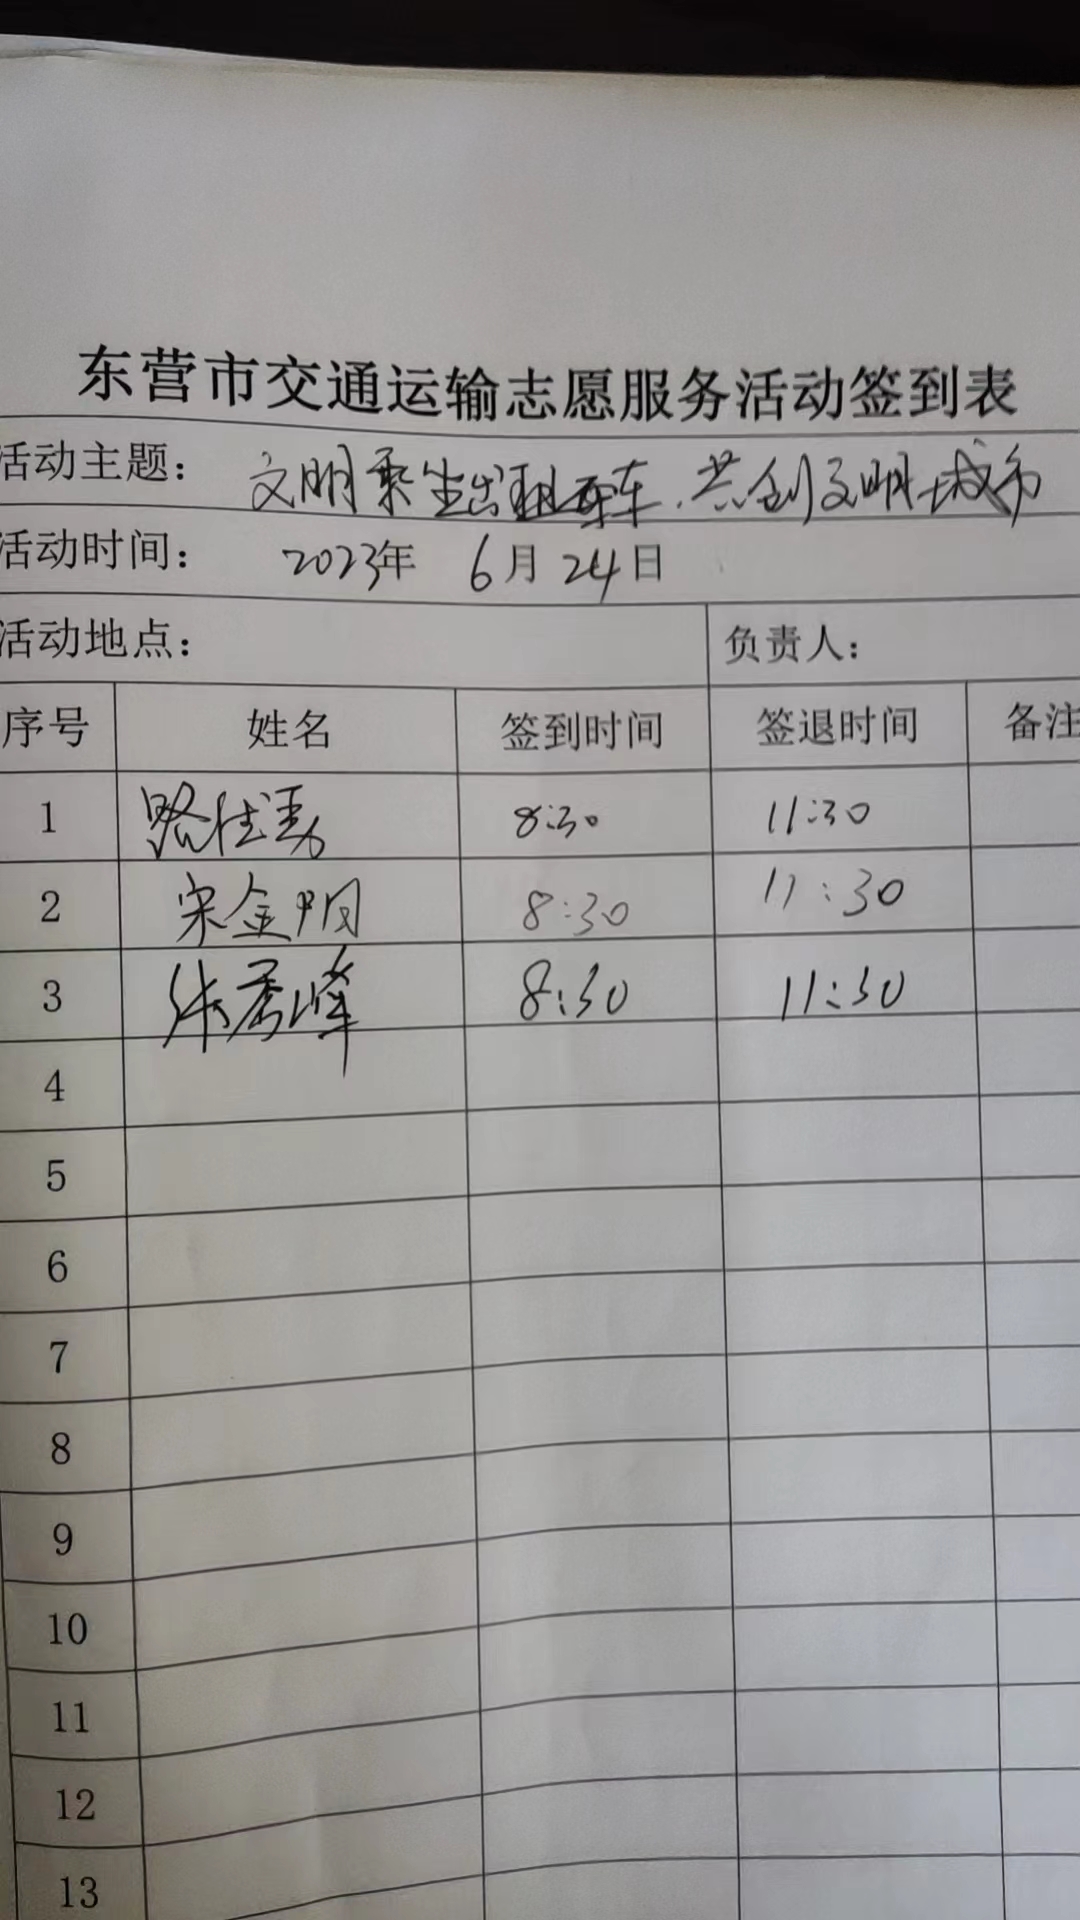 东营市交通运输志愿服务活动签到表
活动主题： 文明乘坐出租车，共创文明城市
活动时间： 2023年 6月24日
活动地点： 负责人：
序号 姓名 签到时间 签退时间 备注
1 路 8:30 11:30
2 宋金明 8:30 11:30
3 秀峰 8:30 11:30
4
5
6
7
8
9
10
11
12
13